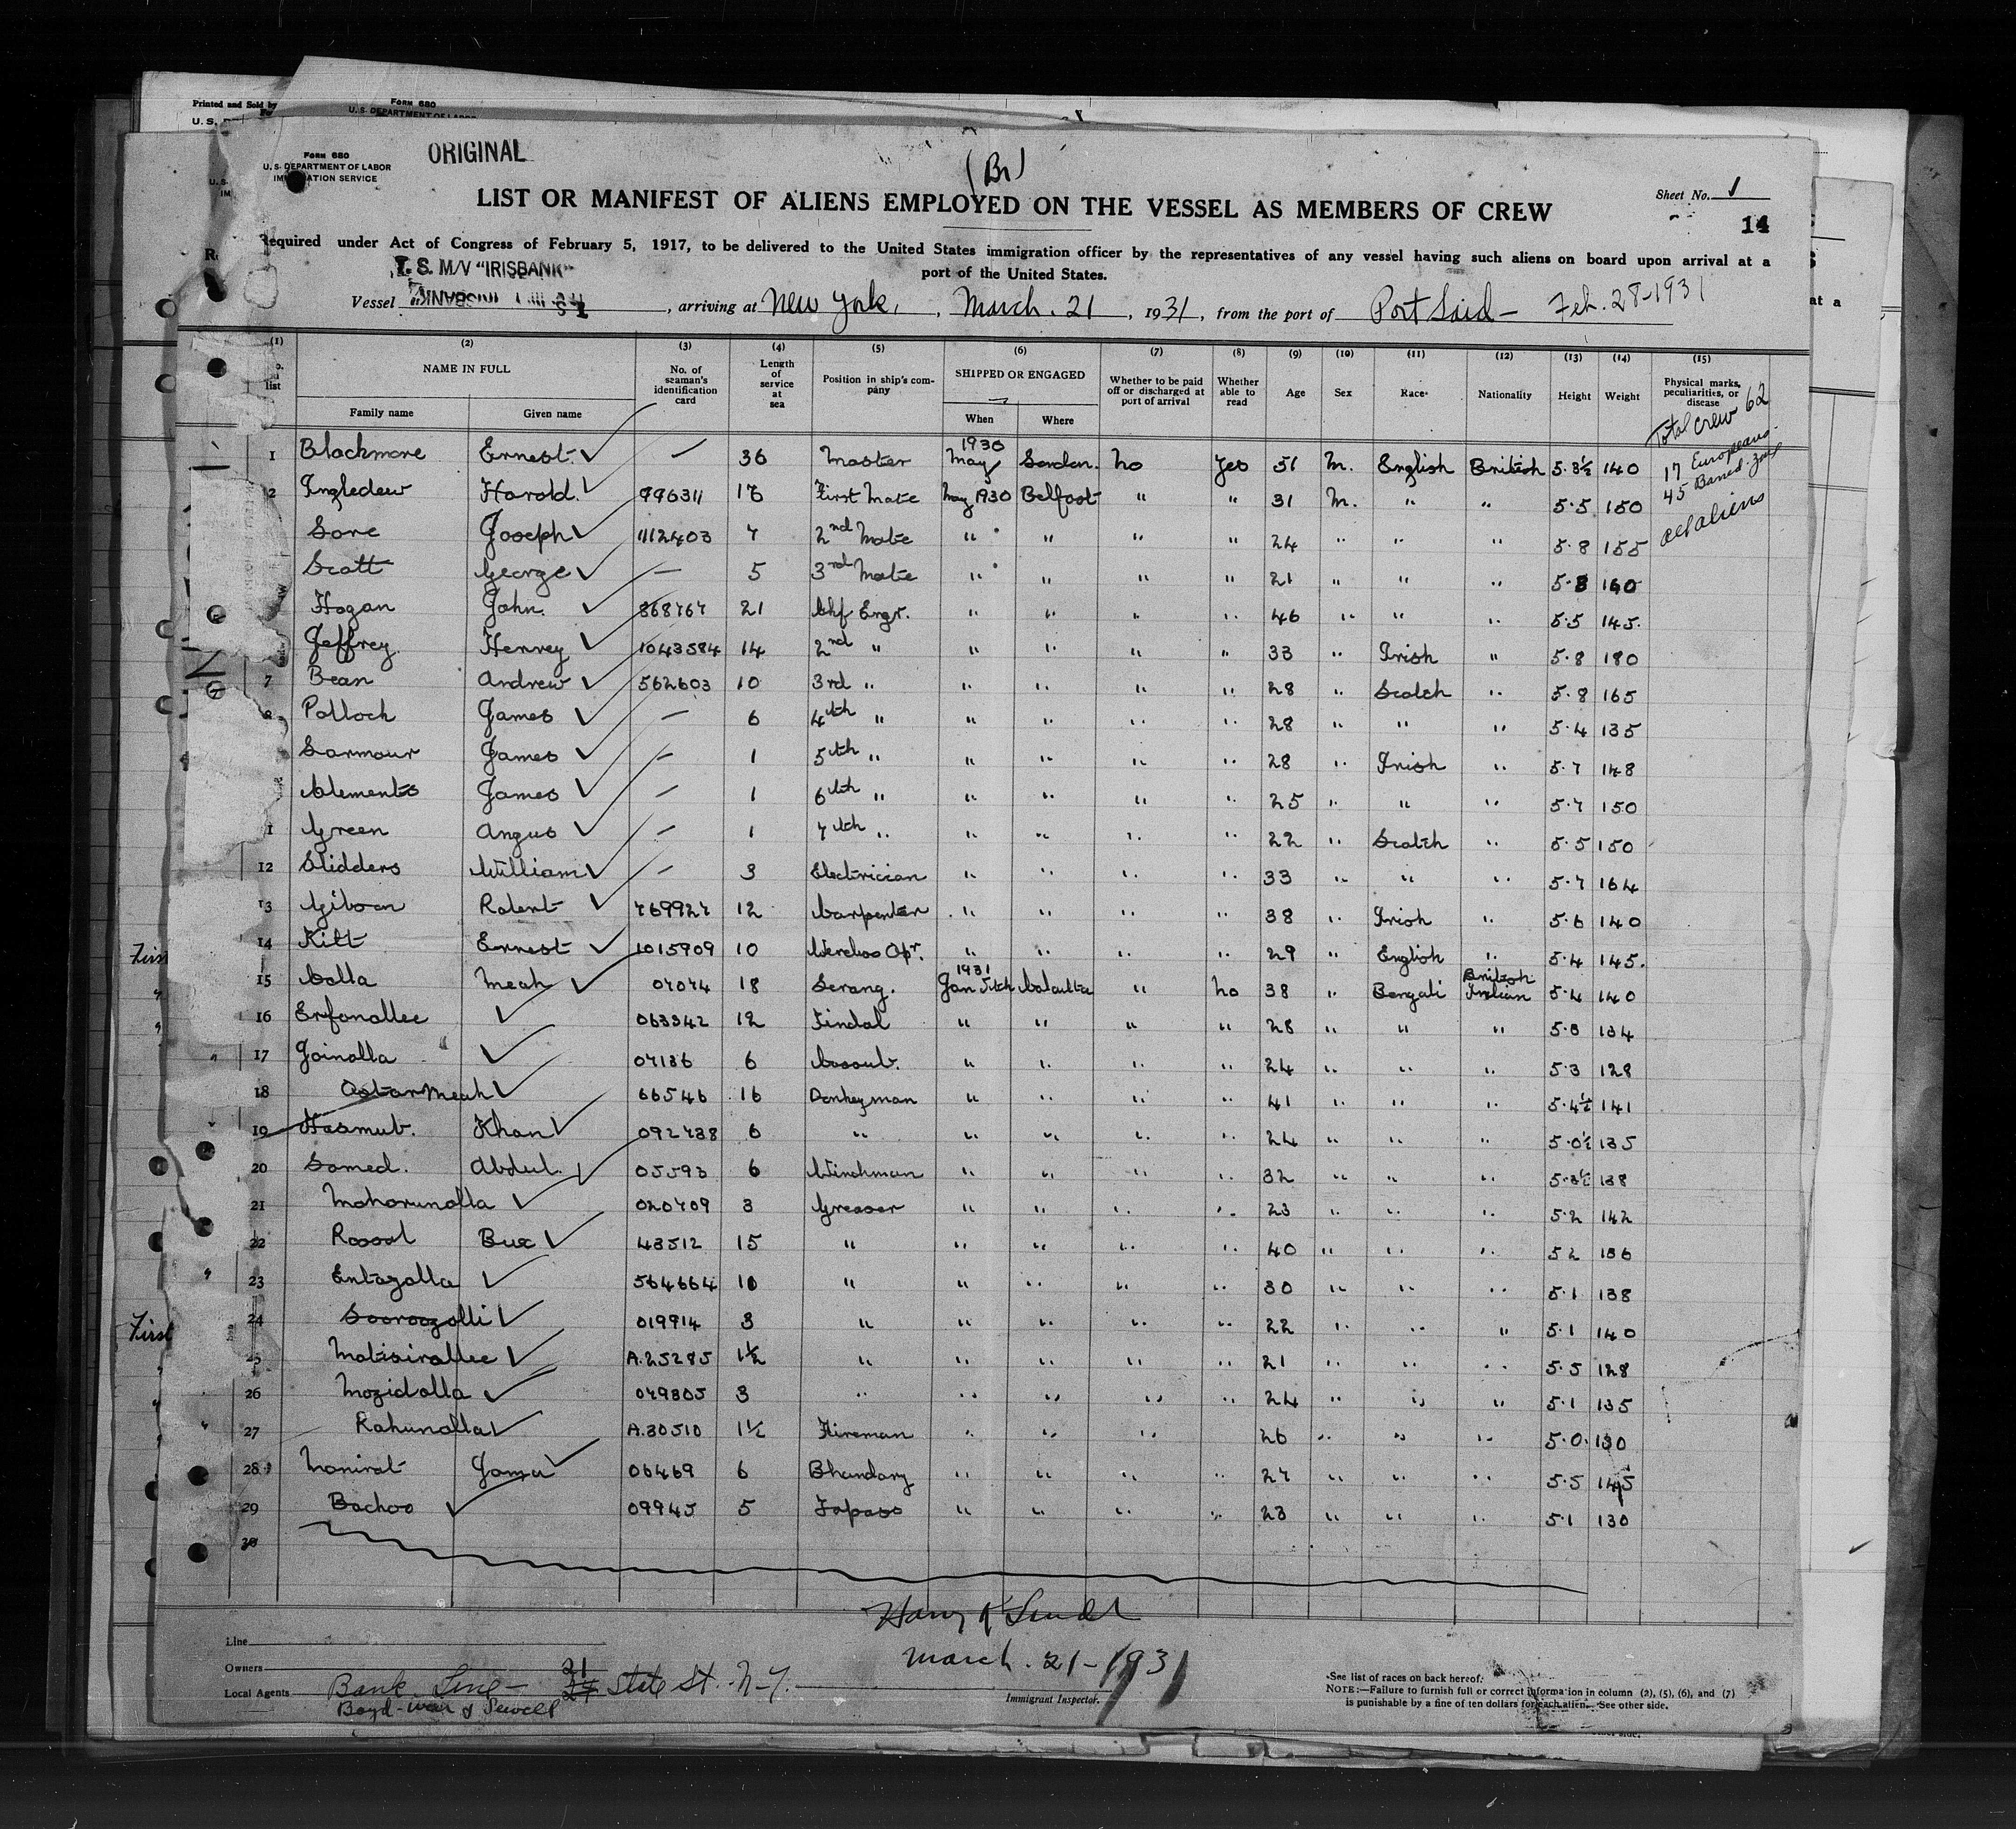 Printed and Sold by
FORM 680
U. S. DEPARTMENT OF LABOR
FORM 680
U. S. DEPARTMENT OF LABOR
IMMIGRATION SERVICE
ORIGINAL
(Br)
LIST OR MANIFEST OF ALIENS EMPLOYED ON THE VESSEL AS MEMBERS OF CREW
Sheet No. 1
14
Required under Act of Congress of February 5, 1917, to be delivered to the United States immigration officer by the representatives of any vessel having such aliens on board upon arrival at a
port of the United States.
T. S. M/V "IRISBANK"
Vessel , arriving at New York, , March. 21 , 1931 , from the port of Port Said - Feb. 28-1931
(1) (2) (3) (4) (5) (6) (7) (8) (9) (10) (11) (12) (13) (14) (15)
No. on list NAME IN FULL Family name Given name No. of seaman's identification card Length of service at sea Position in ship's company SHIPPED OR ENGAGED When Where Whether to be paid off or discharged at port of arrival Whether able to read Age Sex Race* Nationality Height Weight Physical marks, peculiarities, or disease
Total crew 62
17 Europeans
45
all aliens
1 Blackmore Ernest. — 36 Master 1930 May London. No Yes 51 M. English British 5.8½ 140
2 Ingledew Harold. 996311 16 First Mate May 1930 Belfast " " 31 M. " " 5.5 150
Sare Joseph 1112403 7 2nd Mate " " " " 24 " " " 5.8 155
Scott George — 5 3rd Mate " " " " 21 " " " 5.8 160
Hogan John. 868767 21 Chf Engr. " " " " 46 " " " 5.5 145.
Jeffrey Henrey 1043584 14 2nd " " " " " 33 " Irish " 5.8 180
7 Bean Andrew 562603 10 3rd " " " " " 28 " Scotch " 5.8 165
8 Pollock James — 6 4th " " " " " 28 " " " 5.4 135
Larmour James — 1 5th " " " " " 28 " Irish " 5.7 148
Clements James — 1 6th " " " " " 25 " " " 5.7 150
Green Angus — 1 7th " " " " " 22 " Scotch " 5.5 150
12 Slidders William — 3 Electrician " " " " 33 " " " 5.7 164
13 Gibson Robert 769927 12 Carpenter " " " " 38 " Irish " 5.6 140
14 Kilt Ernest 1015909 10 Wireless Opr. " " " " 29 " English " 5.4 145.
15 Calla Meah 07074 18 Serang. 1931 Jan Calcutta " No 38 " Bengali British Indian 5.4 140
16 Erfanallee 063342 12 Tindal " " " " 28 " " " 5.3 134
17 Joinalla 07136 6 Cassub. " " " " 24 " " " 5.3 128
18 Astar Meah 66546 16 Donkeyman " " " " 41 " " " 5.4½ 141
19 Hasmut. Khan 092738 6 " " " " " 24 " " " 5.0½ 135
20 Samed. Abdul. 05593 6 Winchman " " " " 32 " " " 5.3½ 138
21 Mohorunalla 020709 3 Greaser " " " " 23 " " " 5.2 142
22 Rosool Bux 43512 15 " " " " " 40 " " " 5.2 136
23 Entazalla 564664 10 " " " " " 30 " " " 5.1 138
24 Sooroogolli 019914 3 " " " " " 22 " " " 5.1 140
25 Matisirallee A.25285 1½ " " " " " 21 " " " 5.5 128
26 Mozidalla 079305 3 " " " " " 24 " " " 5.1 135
27 Rahunalla A.30510 1½ Fireman " " " 26 " " " 5.0. 130
28 Monirat 06469 6 Bhandary " " " " 27 " " " 5.5 145
29 Bachoo 09945 5 Topass " " " " 23 " " " 5.1 130
30
March. 21-1931
Immigrant Inspector.
Line
Owners
Local Agents Bank Line - 21 State St. N-Y.
Boyd-Weir & Sewell
*See list of races on back hereof.
NOTE:—Failure to furnish full or correct information in column (2), (5), (6), and (7)
is punishable by a fine of ten dollars for each alien. See other side.
First
First